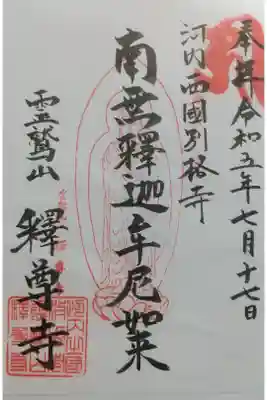 奉拝 令和五年七月十七日
河内西國別格寺
南無釋迦牟尼如来
霊鷲山
釋尊寺